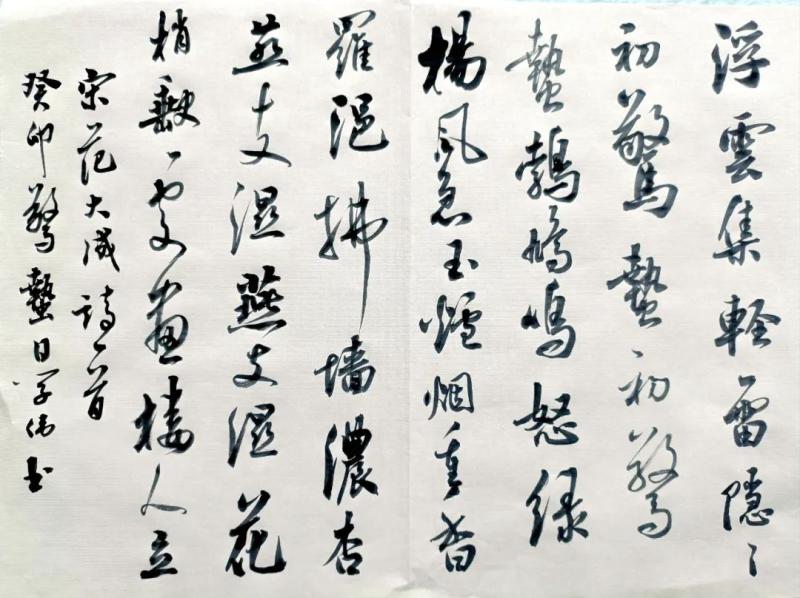 浮雲集輕雷隱〻
初驚蟄初驚
蟄鵓鳩鳴怒綠
楊風急玉爐烟重香
羅浥拂墙濃杏
燕支濕燕支濕花
梢缺處畫樓人立
宋范大成詩一首
癸卯驚蟄日学偉书